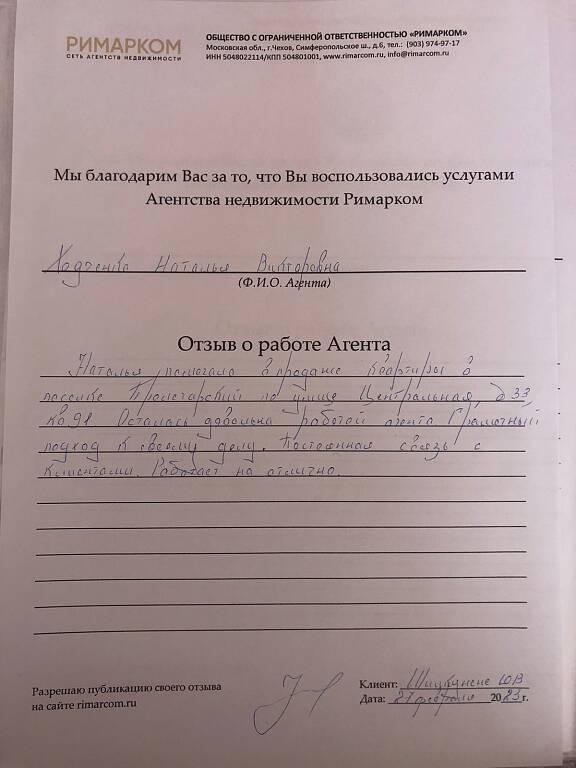 РИМАРКОМ
СЕТЬ АГЕНТСТВ НЕДВИЖИМОСТИ
ОБЩЕСТВО С ОГРАНИЧЕННОЙ ОТВЕТСТВЕННОСТЬЮ «РИМАРКОМ»
Московская обл., г.Чехов, Симферопольское ш., д.6, тел.: (903) 974-97-17
ИНН 5048022114/КПП 504801001, www.rimarcom.ru, info@rimarcom.ru
Мы благодарим Вас за то, что Вы воспользовались услугами
Агентства недвижимости Римарком
Наталья Викторовна
(Ф.И.О. Агента)
Отзыв о работе Агента
Наталья помогала в продаже квартиры в
поселке Пролетарский по улице Центральная, д 33
кв. 91 Осталась довольна работой агента Грамотный
подход к своему делу. Постоянная связь с
клиентами. Работает на отлично.
Разрешаю публикацию своего отзыва
на сайте rimarcom.ru
Клиент: ЮВ
Дата: 27 февраля 2023 г.